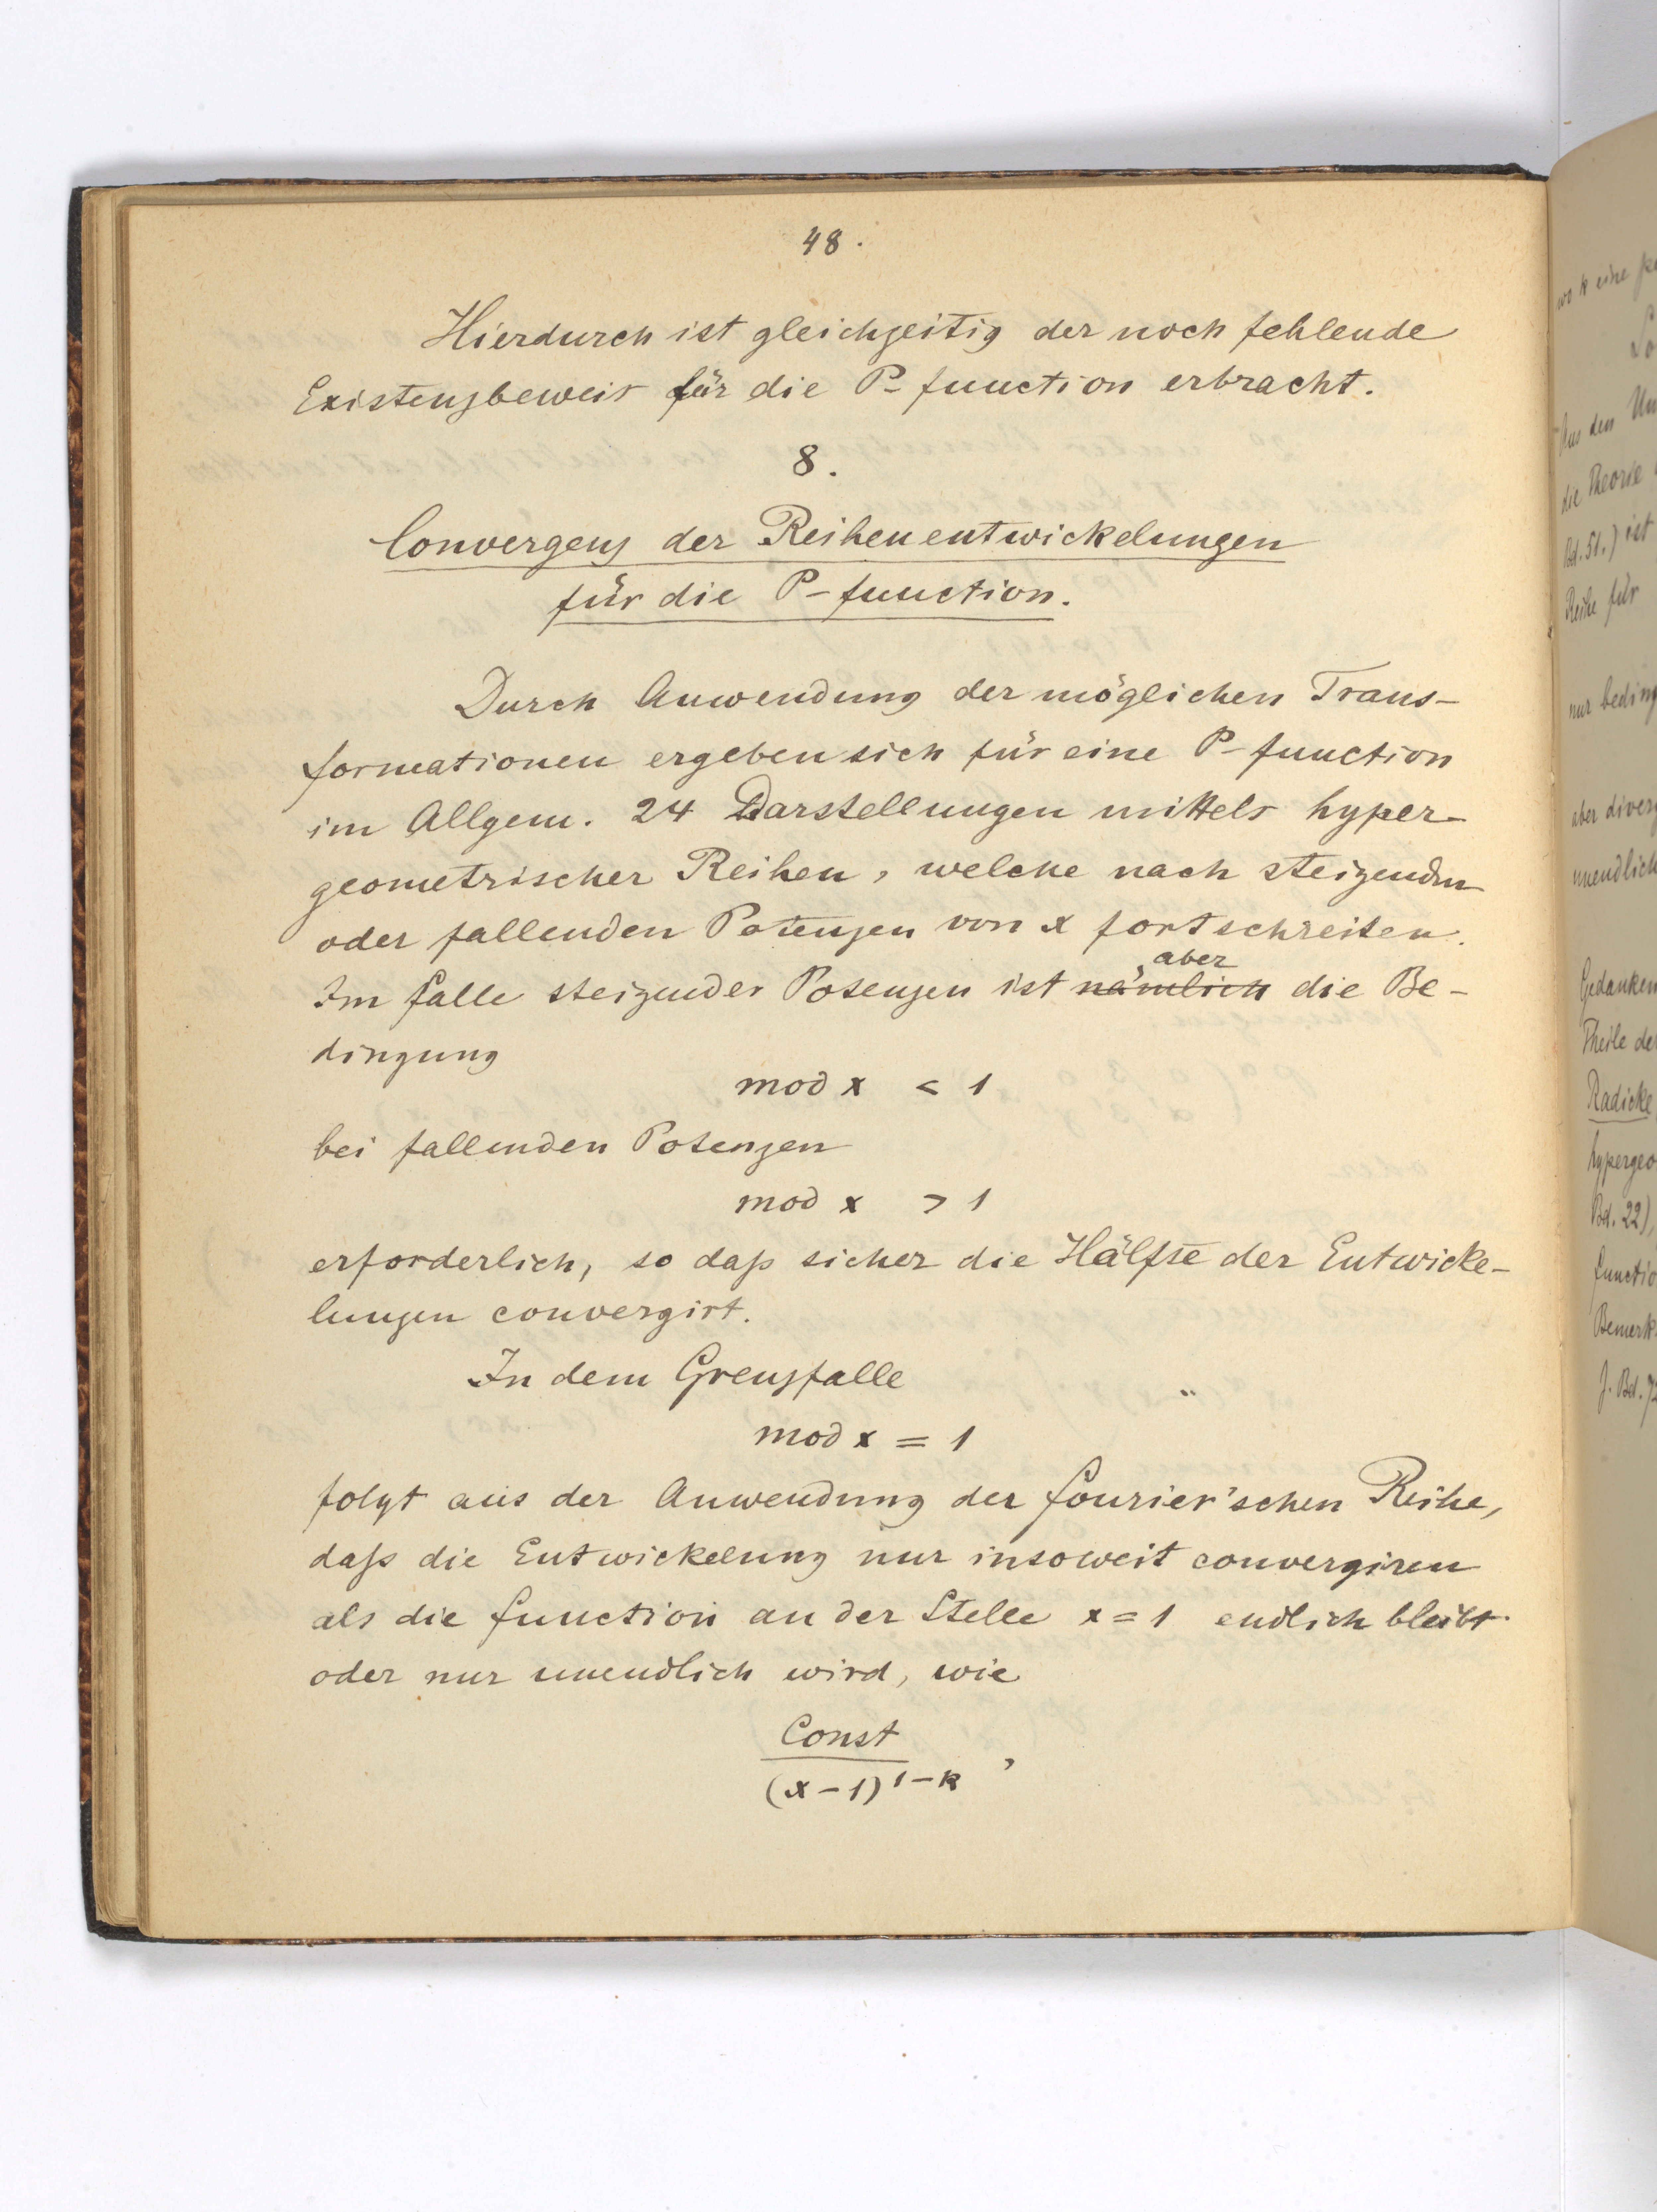 48.
Hierdurch ist gleichzeitig der noch fehlende
Existenzbeweis für die P-function erbracht.
8.
Convergenz der Reihenentwickelungen
für die P-function.
Durch Anwendung der möglichen Trans-
formationen ergeben sich für eine P-function
im Allgem. 24 Darstellungen mittels hyper-
geometrischer Reihen, welche nach steigenden
oder fallenden Potenzen von x fortschreiten.
aber
Im falle steigender Potenzen ist nämlich die Be-
dingung
mod x < 1
bei fallenden Potenzen
mod x > 1
erforderlich, so daß sicher die Hälfte der Entwicke-
lungen convergirt.
In dem Grenzfalle
mod x = 1
folgt aus der Anwendung der fourier'schen Reihe,
daß die Entwickelung nur insoweit convergiren
als die function an der Stelle x = 1 endlich bleibt
oder nur unendlich wird, wie
Const
(x-1)^{1-k} ,
wo k eine
Aus den
die Theorie
Bd. 51.) ist
Reihe für
nur beding
aber diverg
unendlich
Gedanken
Theile der
Radicke
hypergeo
Bd. 22),
functio
Bemerk
J. Bd. 7